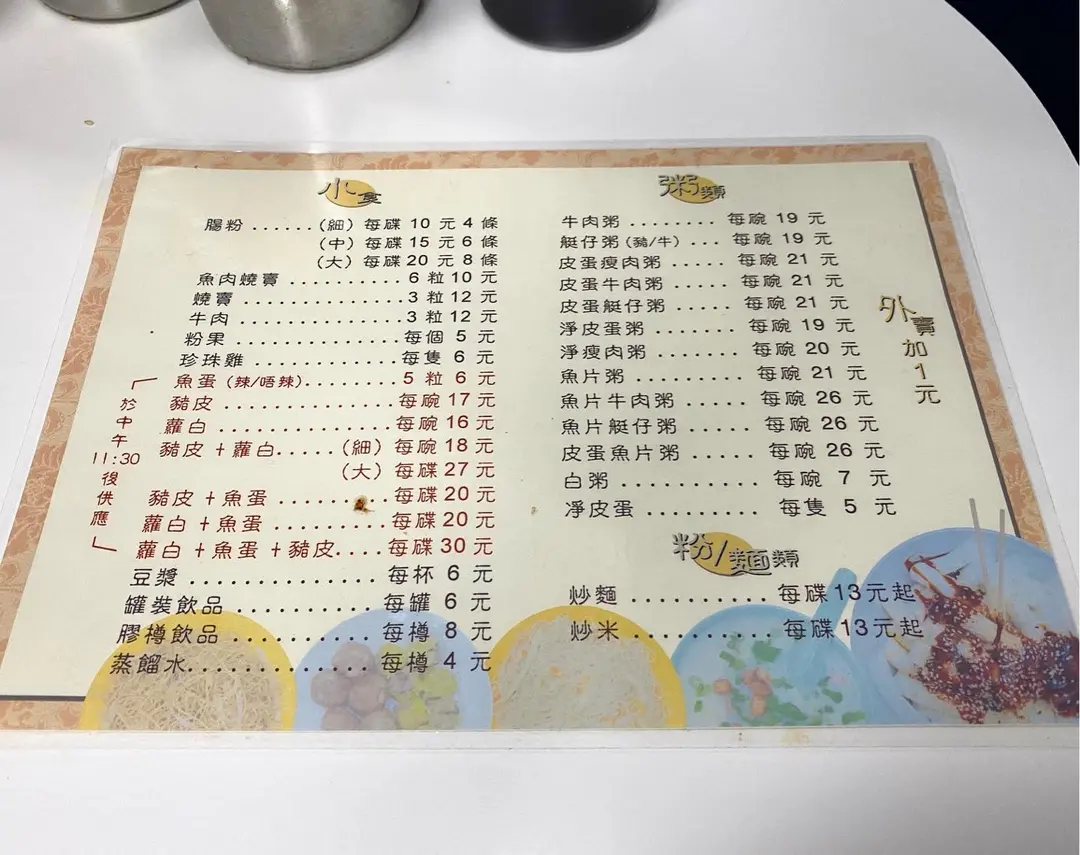 小食
腸粉......(細) 每碟 10 元 4 條
(中) 每碟 15 元 6 條
(大) 每碟 20 元 8 條
魚肉燒賣..........6 粒 10 元
燒賣...............3 粒 12 元
牛肉...............3 粒 12 元
粉果...............每個 5 元
珍珠雞.............每隻 6 元
魚蛋(辣/唔辣)........5 粒 6 元
豬皮...............每碗 17 元
蘿白...............每碗 16 元
豬皮+蘿白.....(細) 每碗 18 元
(大) 每碟 27 元
豬皮+魚蛋.........每碟 20 元
蘿白+魚蛋.........每碟 20 元
蘿白+魚蛋+豬皮....每碟 30 元
於中午11:30後供應
豆漿...............每杯 6 元
罐裝飲品..........每罐 6 元
膠樽飲品..........每樽 8 元
蒸餾水............每樽 4 元
粥類
牛肉粥........每碗 19 元
艇仔粥(豬/牛)...每碗 19 元
皮蛋瘦肉粥.....每碗 21 元
皮蛋牛肉粥.....每碗 21 元
皮蛋艇仔粥.....每碗 21 元
淨皮蛋粥.......每碗 19 元
淨瘦肉粥.......每碗 20 元
魚片粥.........每碗 21 元
魚片牛肉粥.....每碗 26 元
魚片艇仔粥.....每碗 26 元
皮蛋魚片粥.....每碗 26 元
白粥..........每碗 7 元
淨皮蛋........每隻 5 元
外賣加1元
粉/麵類
炒麵..........每碟13元起
炒米..........每碟13元起